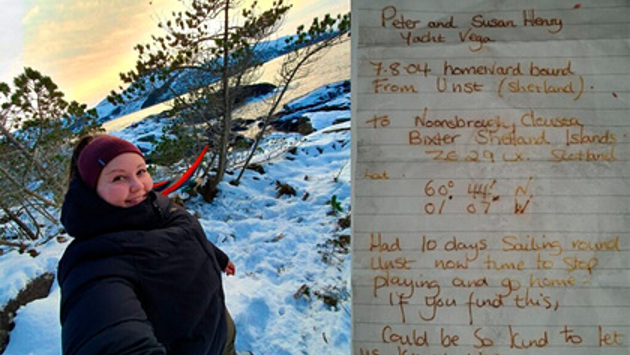 Peter and Susan Henry
Yacht Vega
7.8.04 homeward bound
From Unst (Shetland).
To Noonsbrough, Clousta
Bixter Shetland Islands
ZE2 9LX. Scotland
Lat
60° 44' N.
01° 07' W
Had 10 days sailing round
Unst now time to stop
playing and go home.
If you find this,
Could be so kind to let
us know